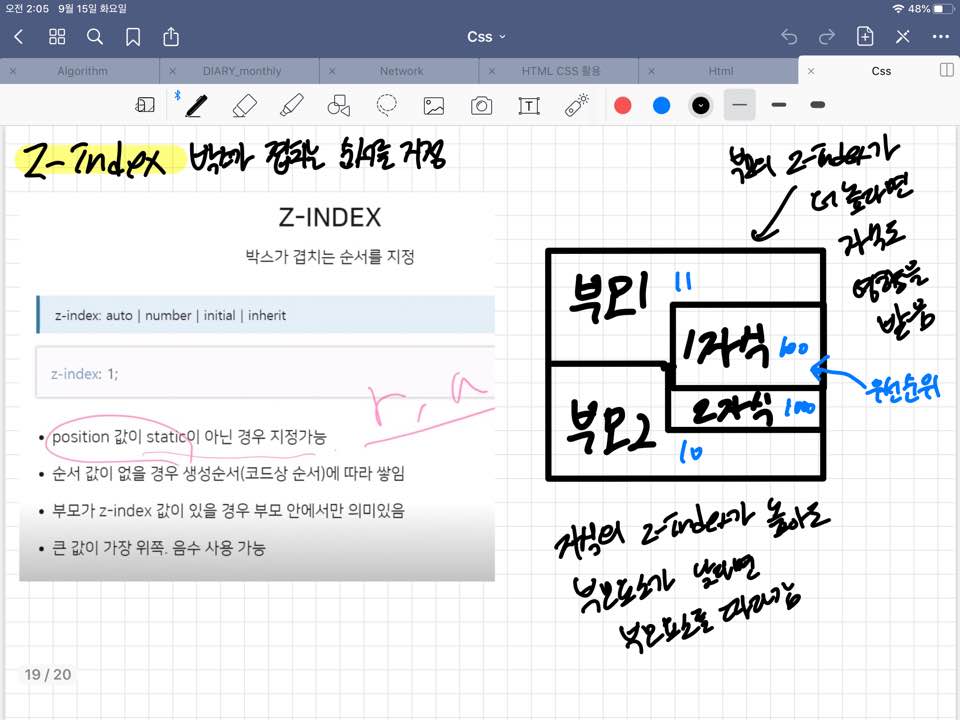 오전 2:05 9월 15일 화요일
48%
Css
Algorithm
DIARY_monthly
Network
HTML CSS 활용
Html
Css
T
Z-Index 박스가 겹치는 순서를 지정
Z-INDEX
박스가 겹치는 순서를 지정
z-index: auto | number | initial | inherit
z-index: 1;
r, a
• position 값이 static이 아닌 경우 지정가능
• 순서 값이 없을 경우 생성순서(코드상 순서)에 따라 쌓임
• 부모가 z-index 값이 있을 경우 부모 안에서만 의미있음
• 큰 값이 가장 위쪽. 음수 사용 가능
부모의 Z-index가
더 높다면
자식도
영향을
받음
부모1 11
1자식 100
우선순위
2자식 100
부모2
10
자식의 Z-Index가 높아도
부모요소가 낮다면
부모요소를 따라감
19 / 20